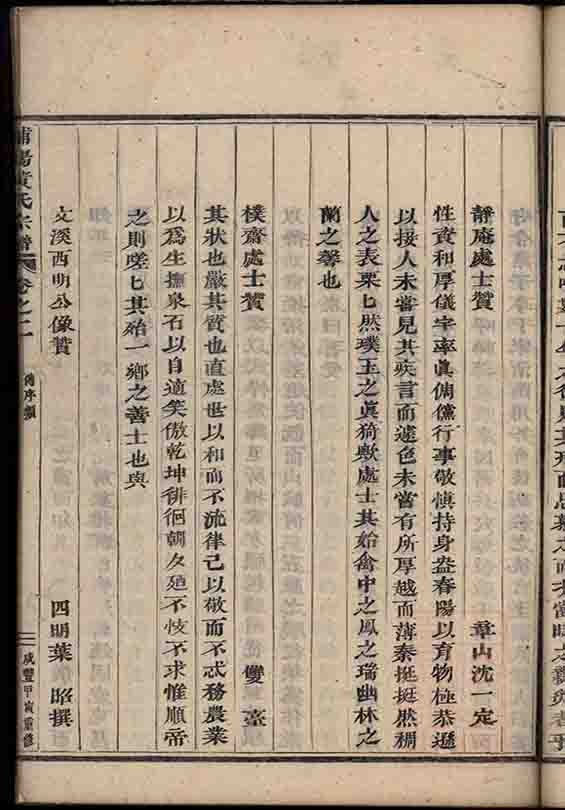 靜庵處士贊
章山沈一定
性資和厚儀宇率眞倜儻行事敬愼持身盎春陽以育物極恭遜
以接人未嘗見其疾言而遽色未嘗有所厚越而薄秦挺挺然稠
人之表栗匕然璞玉之眞猗歟處士其始禽中之鳳之瑞幽林之
蘭之馨也
樸齋處士贊
雙臺
其狀也嚴其質也直處世以和而不流律己以敬而不忒務農業
以爲生撫泉石以自適笑傲乾坤徘徊朝夕 不忮不求惟順帝
之則嗟匕其殆一鄉之善士也與
文溪西明公像贊
四明葉 昭撰
浦陽黃氏宗譜 卷之二 傳序類 咸豐甲寅重修